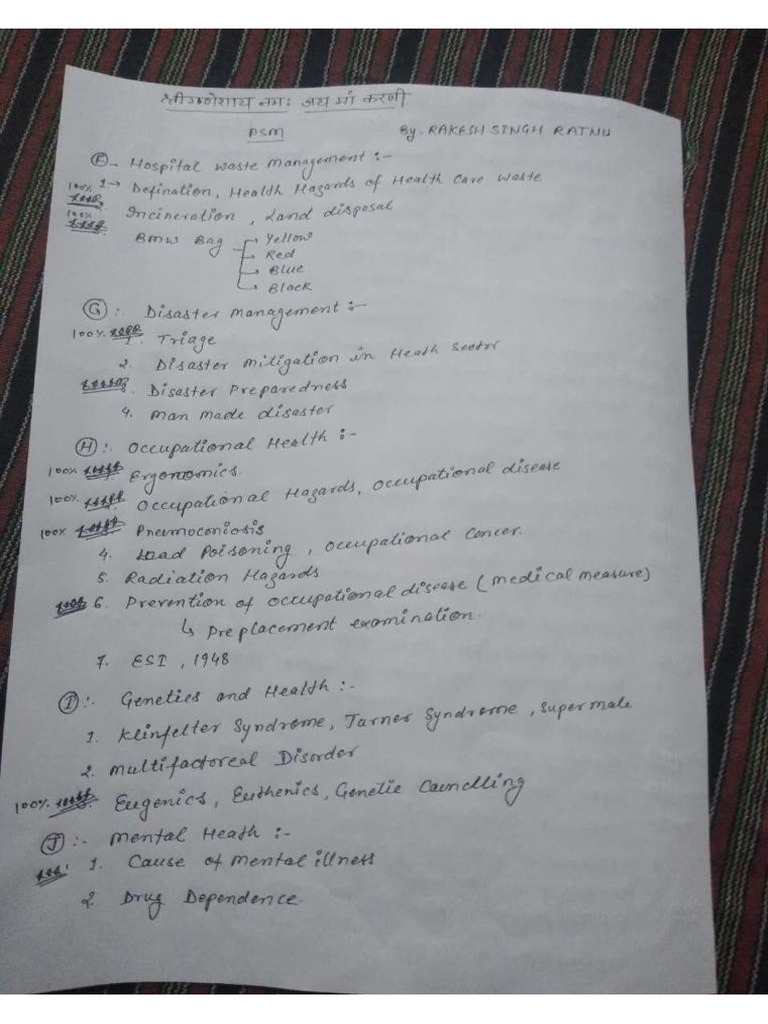 श्री गणेशाय नमः जय माँ करणी
PSM By. RAKESH SINGH RATNU
F - Hospital waste management :-
100% 1→ Defination, Health Hazards of Health Care waste
100% Incineration, Land disposal
BMW Bag Yellow
Red
Blue
Black
G :. Disaster management :-
100% 1. Triage
2. Disaster mitigation in Heath Sector
Disaster Preparedness
4. Man made disaster
H :. Occupational Health :-
100% Ergonomics.
100% Occupational Hazards, Occupational disease
100% Pneumoconiosis
4. Lead Poisoning, Occupational Cancer.
5. Radiation Hazards
6. Prevention of occupational disease (medical measure)
↳ Pre placement examination.
7. ESI, 1948
I :. Genetics and Health :-
1. Klinfelter Syndrome, Tarner Syndrome, Supermale
2. Multifactoreal Disorder
100% Eugenics, Euthenics, Genetic Councelling
J :- Mental Heath :-
1. Cause of mental illness
2. Drug Dependence.